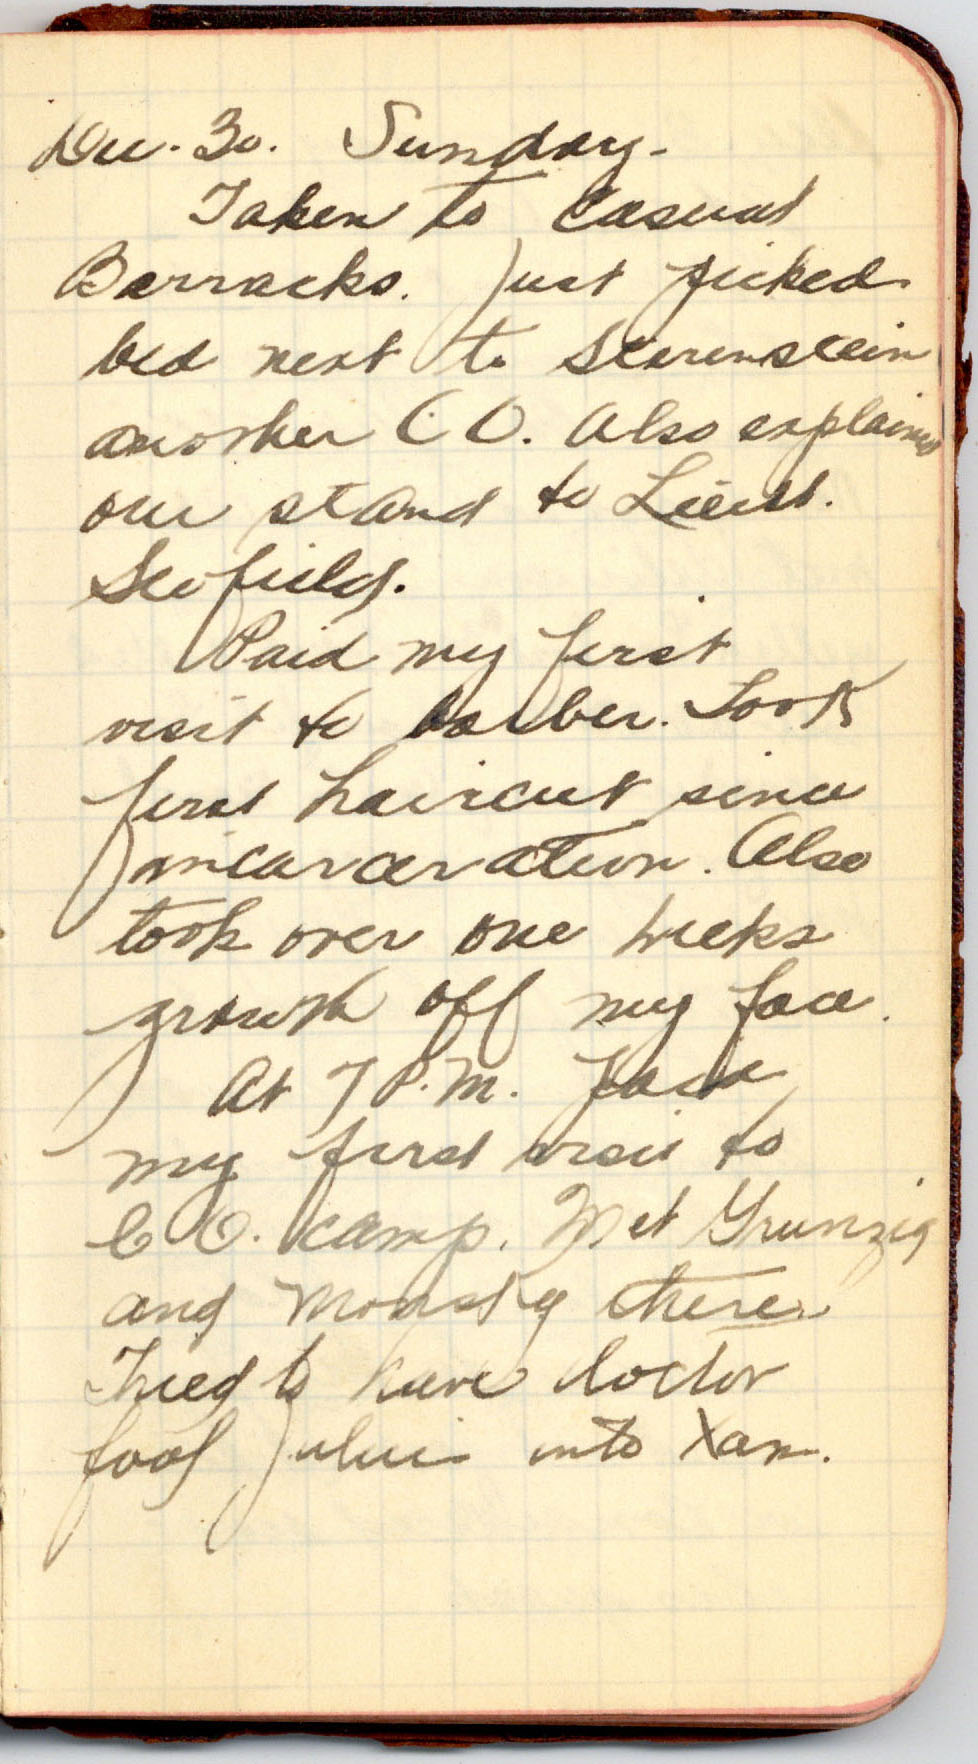 Dec. 30. Sunday.
Taken to Casual
Barracks. Just picked
bed next to Sterenstein
another C O. Also explained
our stand to Lieut.
Scofield.
Paid my first
visit to barber. Took
first haircut since
incarceration. Also
took over one weeks
growth off my face.
At 7 P.M. paid
my first visit to
C O. camp. Met Grunzig
and there
Tried to have doctor
fool Julius into Xam.